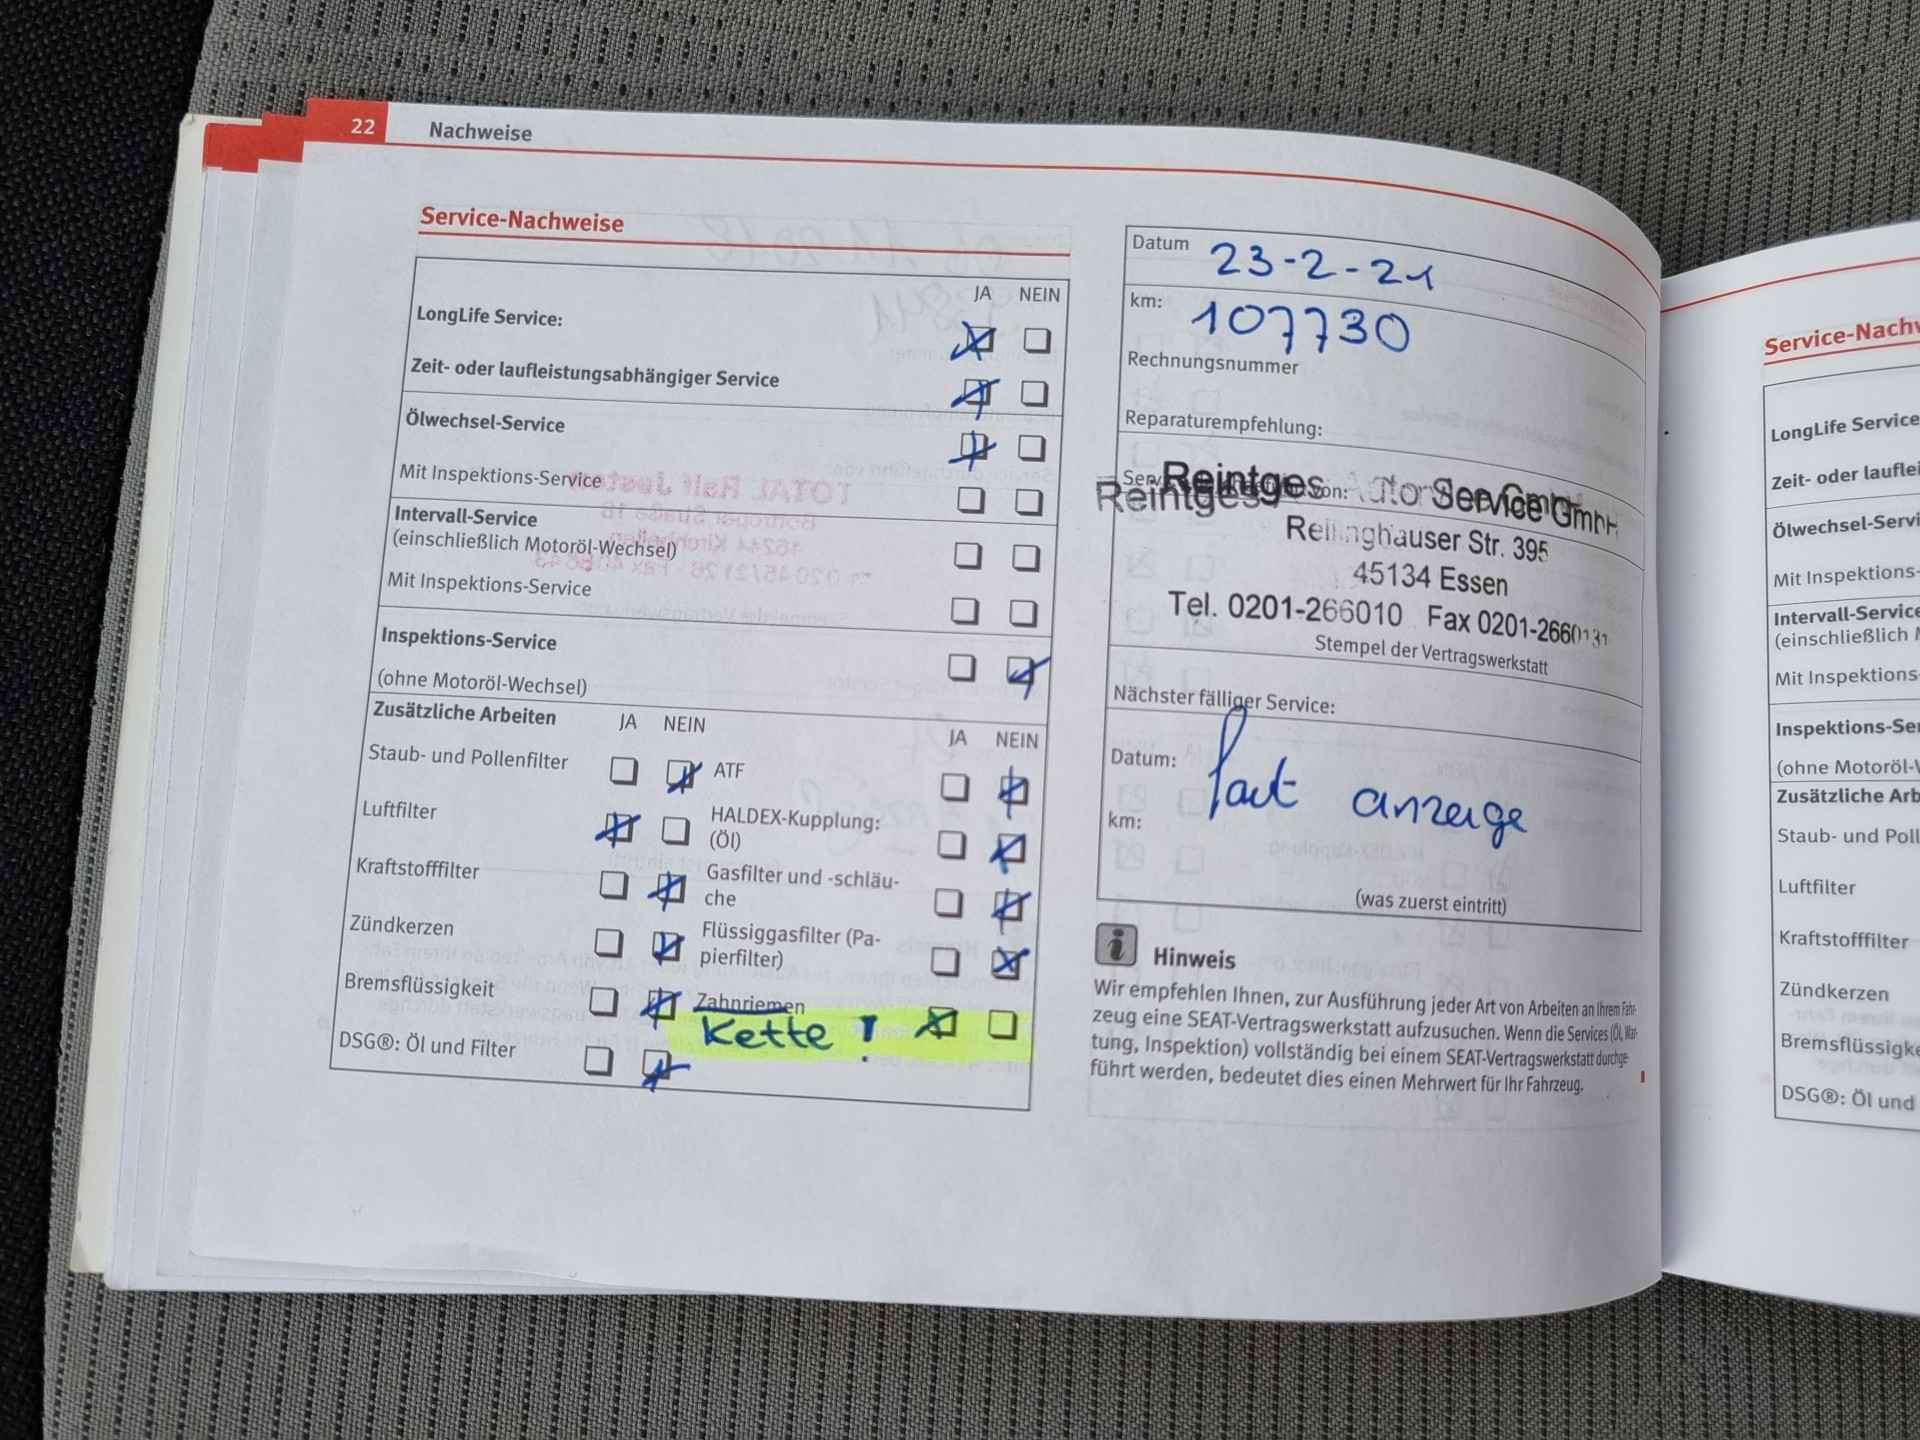 22 Nachweise
Service-Nachweise
JA NEIN
LongLife Service:
Zeit- oder laufleistungsabhängiger Service
Ölwechsel-Service
Mit Inspektions-Service
Intervall-Service
(einschließlich Motoröl-Wechsel)
Mit Inspektions-Service
Inspektions-Service
(ohne Motoröl-Wechsel)
Zusätzliche Arbeiten JA NEIN JA NEIN
Staub- und Pollenfilter ATF
Luftfilter HALDEX-Kupplung:
(Öl)
Kraftstofffilter Gasfilter und -schläu-
che
Zündkerzen Flüssiggasfilter (Pa-
pierfilter)
Bremsflüssigkeit Zahnriemen
Kette !
DSG®: Öl und Filter
Datum 23-2-21
km: 107730
Rechnungsnummer
Reparaturempfehlung:
Reintges Auto Service GmbH
Rellinghauser Str. 395
45134 Essen
Tel. 0201-266010 Fax 0201-2660131
Stempel der Vertragswerkstatt
Nächster fälliger Service:
Datum: laut anzeige
km:
(was zuerst eintritt)
i Hinweis
Wir empfehlen Ihnen, zur Ausführung jeder Art von Arbeiten an Ihrem Fahr-
zeug eine SEAT-Vertragswerkstatt aufzusuchen. Wenn die Services (Öl, War-
tung, Inspektion) vollständig bei einem SEAT-Vertragswerkstatt durchge-
führt werden, bedeutet dies einen Mehrwert für Ihr Fahrzeug.
Service-Nachw
LongLife Service
Zeit- oder laufle
Ölwechsel-Servi
Mit Inspektions-
Intervall-Service
(einschließlich M
Mit Inspektions-
Inspektions-Se
(ohne Motoröl-W
Zusätzliche Arb
Staub- und Poll
Luftfilter
Kraftstofffilter
Zündkerzen
Bremsflüssigke
DSG®: Öl und